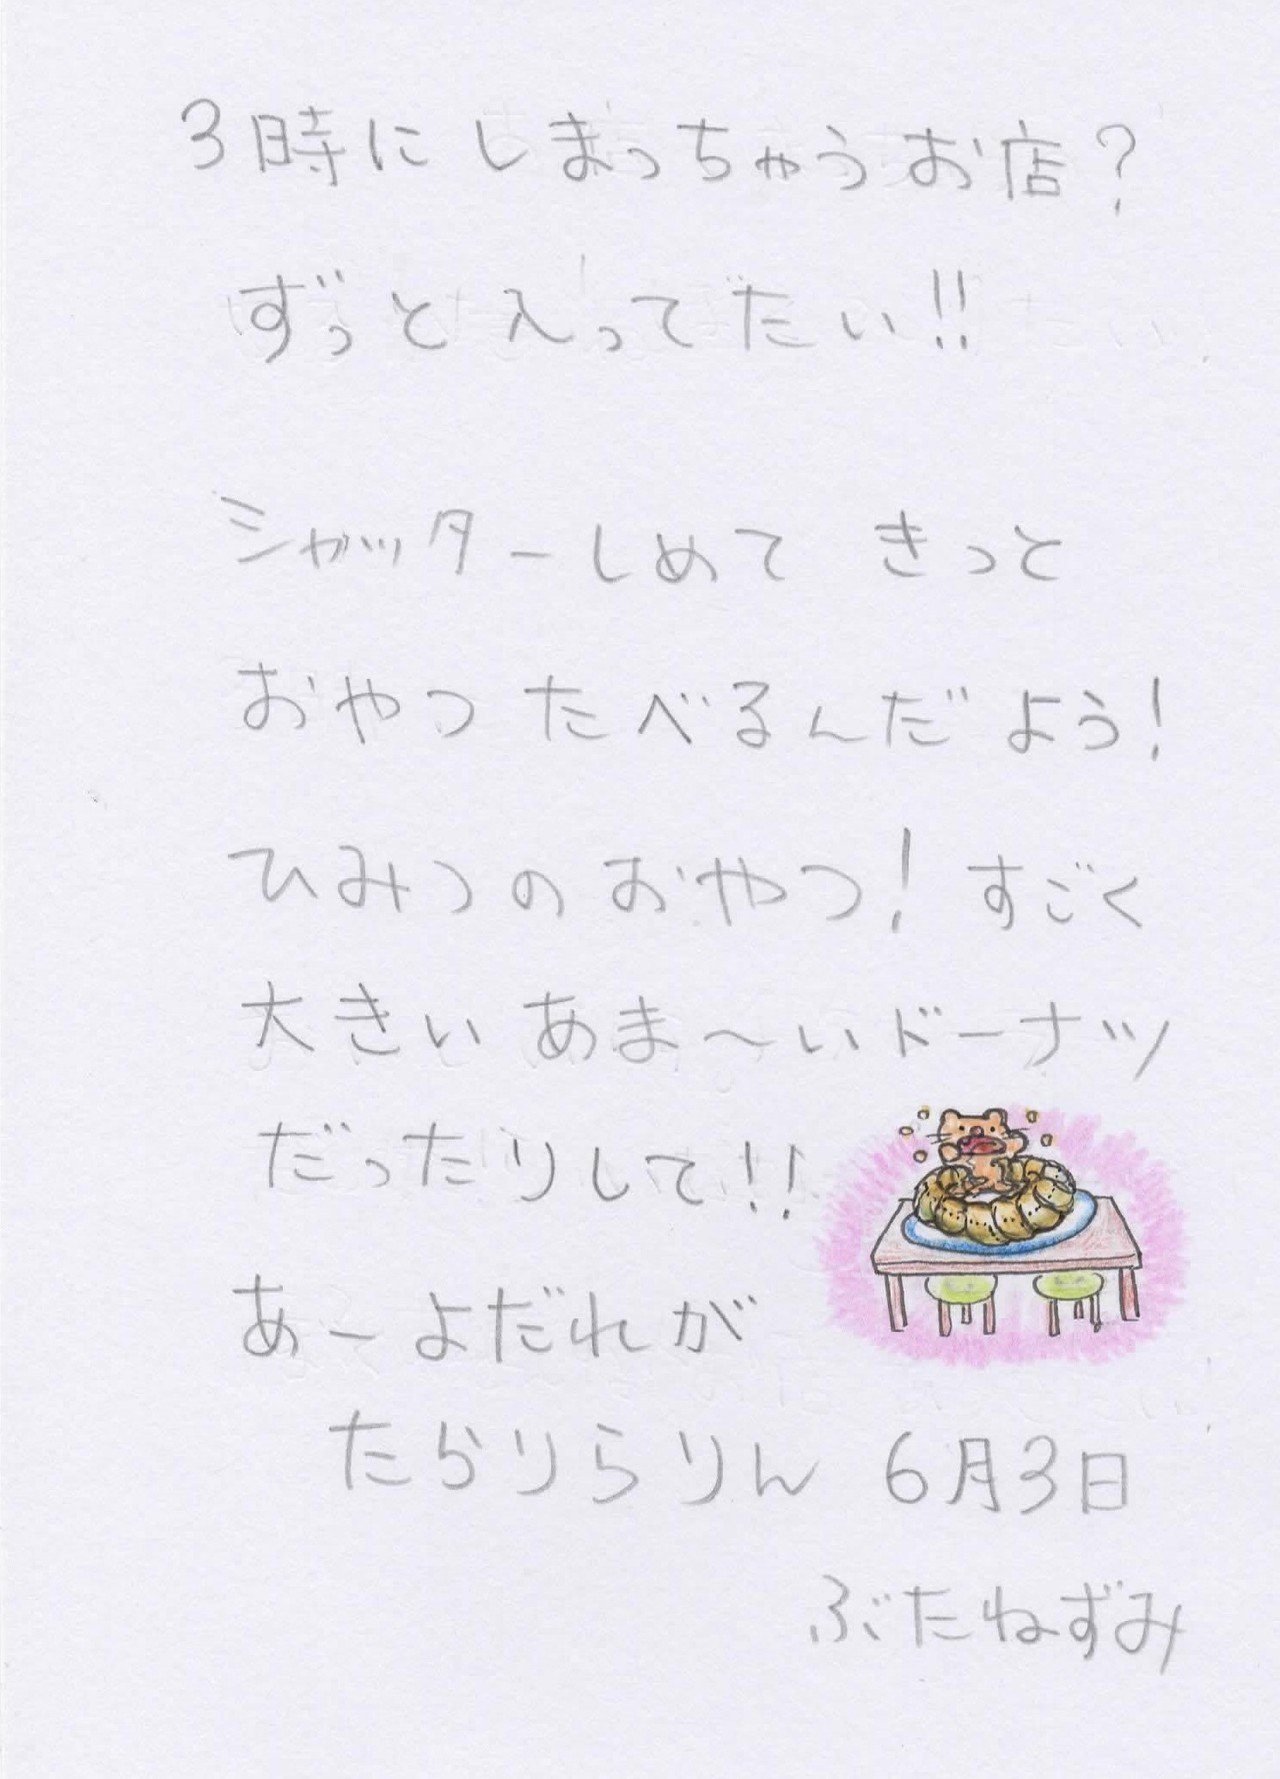 3時に しまっちゃう お店?
ずっと 入ってたい!!
シャッターしめて きっと
おやつ たべるんだ よう!
ひみつの おやつ! すごく
大きい あま〜い ドーナツ
だったりして!!
あーよだれが
たらりらりん 6月3日
ぶたねずみ